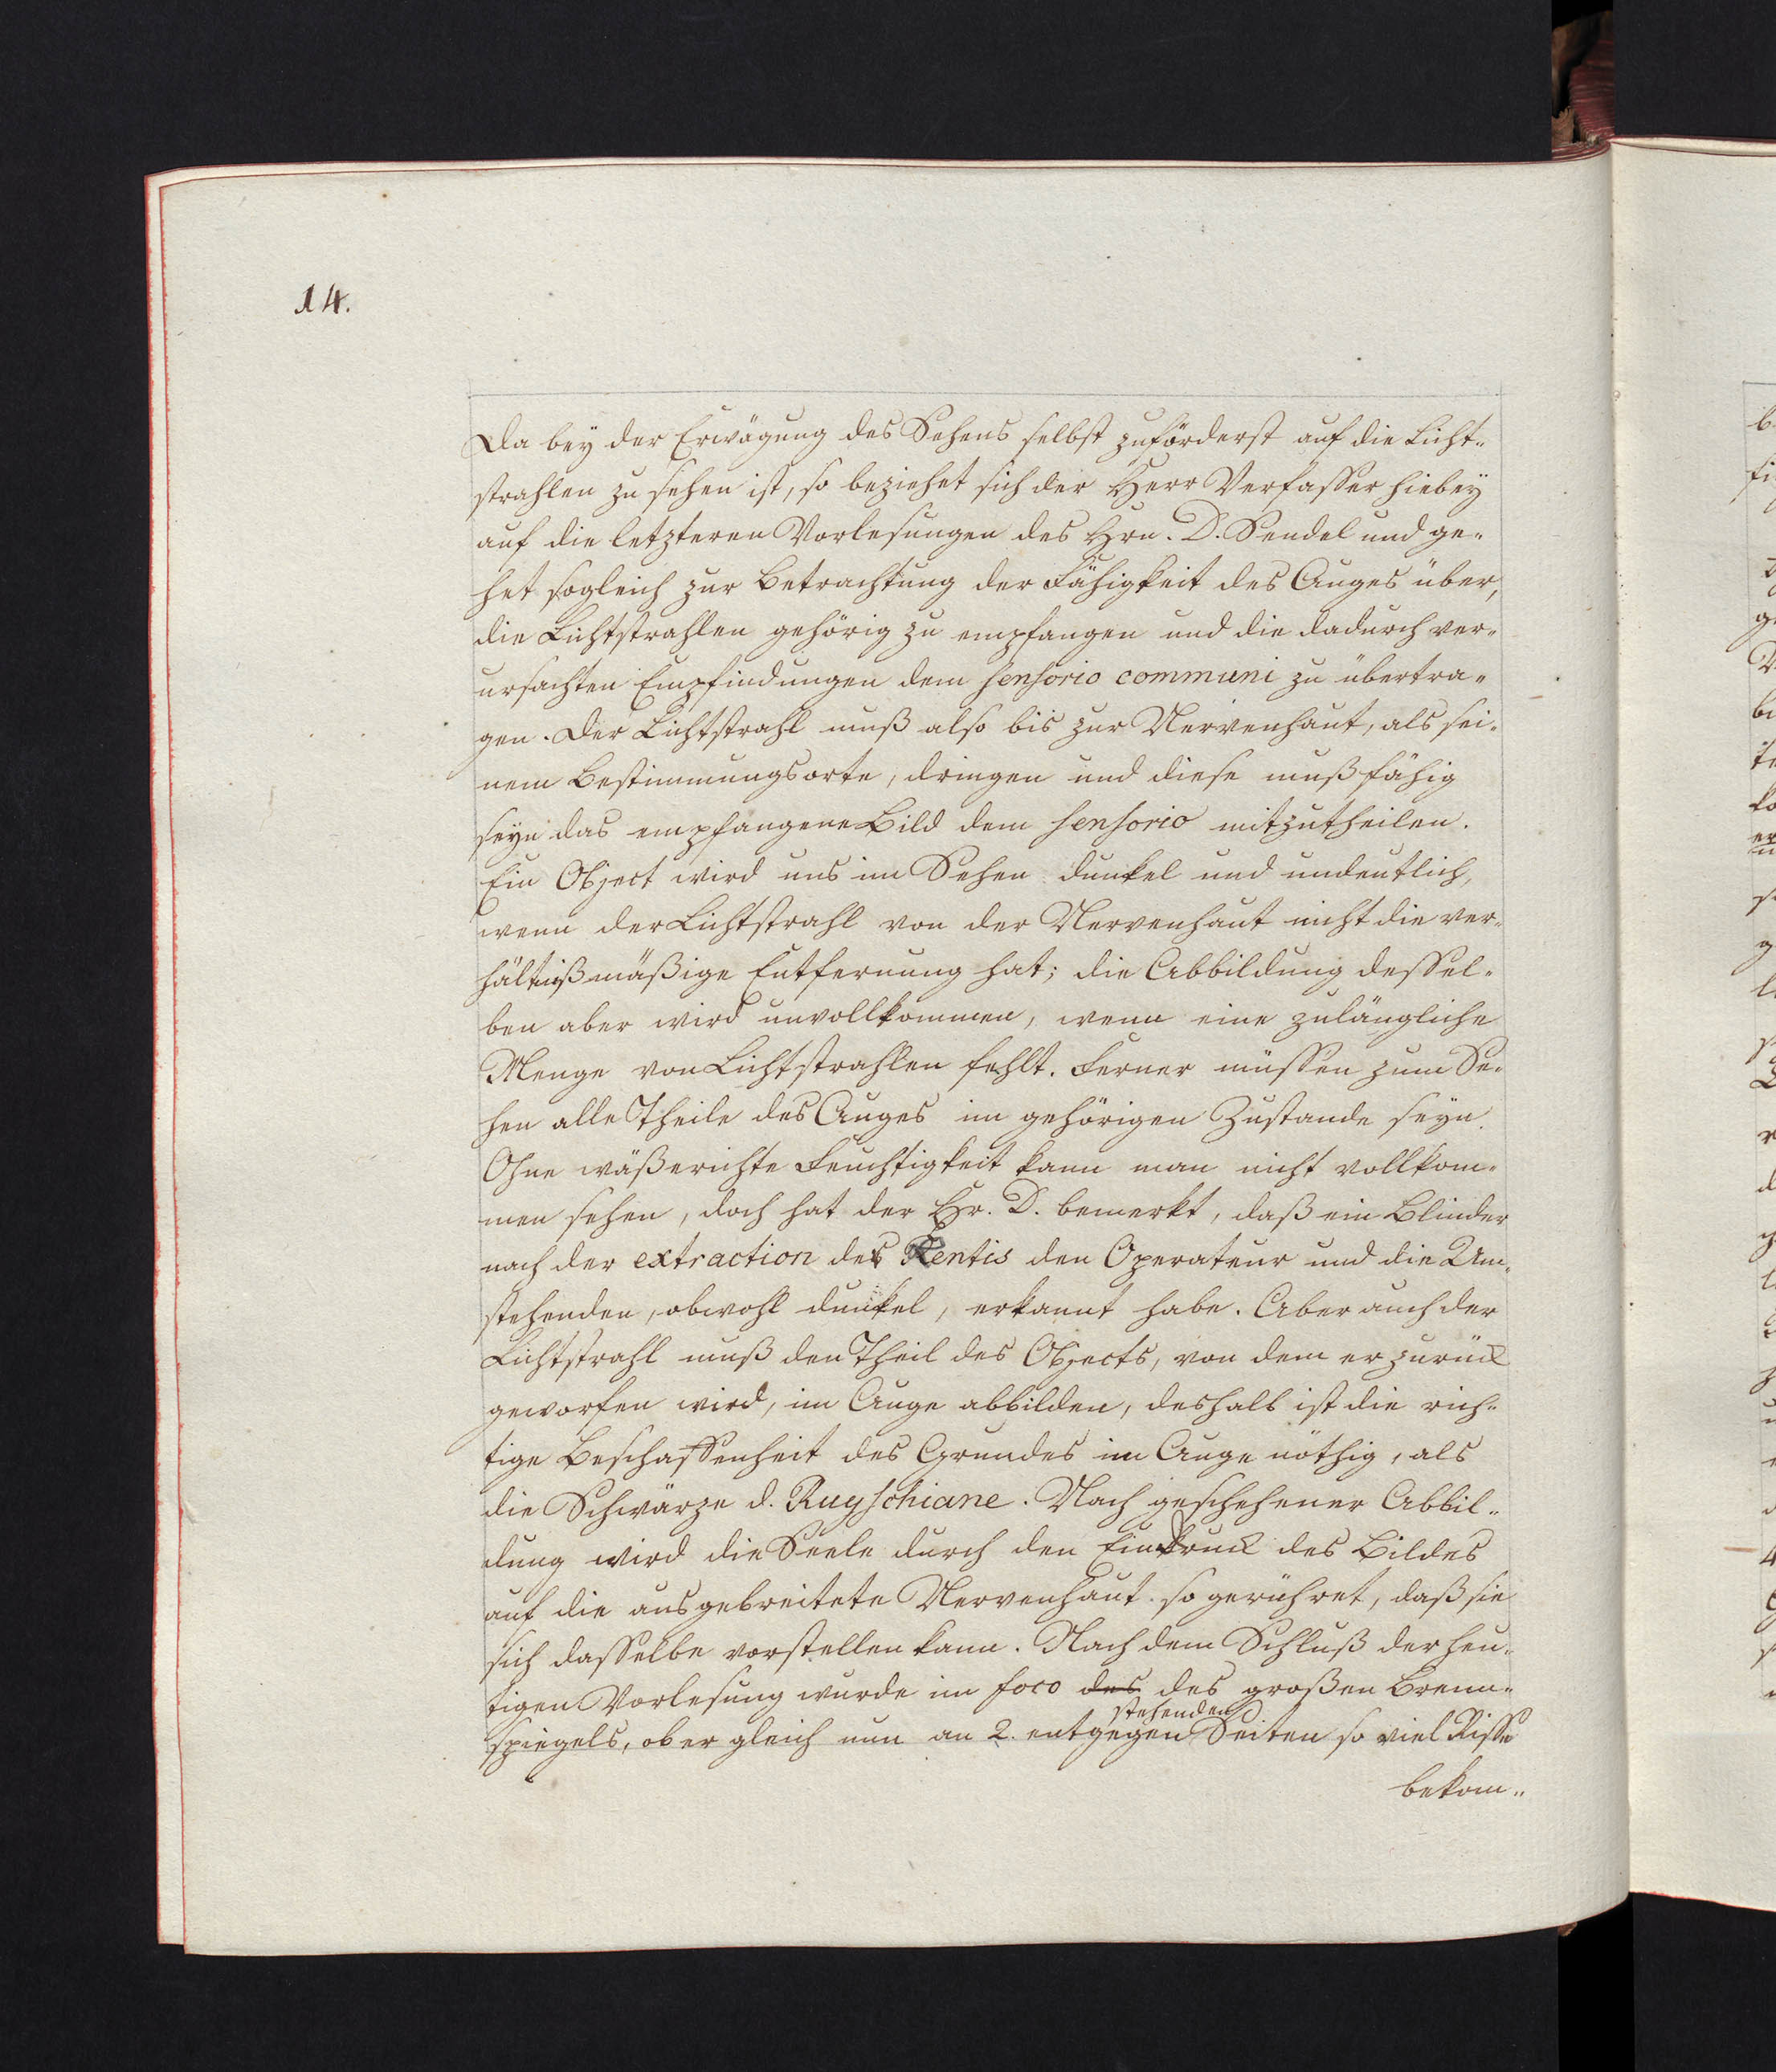 14.
Da bey der Erwägung des Sehens selbst zuförderst auf die Licht-
strahlen zu sehen ist, so beziehet sich der Herr Verfaßer hiebey
auf die letzteren Vorlesungen des Hrn. D. Sendel und ge-
het sogleich zur Betrachtung der Fähigkeit des Auges über,
die Lichtstrahlen gehörig zu empfangen und die dadurch ver-
ursachten Empfindungen dem sensorio communi zu übertra-
gen. Der Lichtstrahl muß also bis zur Nervenhaut, als sei-
nem Bestimmungsorte, dringen und diese muß fähig
seyn das empfangene Bild dem sensorio mitzutheilen.
Ein Object wird uns im Sehen dunkel und undeutlich,
wenn der Lichtstrahl von der Nervenhaut nicht die ver-
hältnißmäßige Entfernung hat; die Abbildung deßel-
ben aber wird unvollkommen, wenn eine zulängliche
Menge von Lichtstrahlen fehlt. Ferner müßen zum Se-
hen alle Theile des Auges im gehörigen Zustande seyn.
Ohne wäßerichte Feuchtigkeit kann man nicht vollkom-
men sehen, doch hat der Hr. D. bemerkt, daß ein Blinder
nach der extraction der Lentis den Operateur und die Um-
stehenden, obwohl dunkel, erkannt habe. Aber auch der
Lichtstrahl muß den Theil des Objects, von dem er zurück
geworfen wird, im Auge abbilden, deshalb ist die rich-
tige Beschaffenheit des Grundes im Auge nöthig, als
die Schwärze d. Ruyschiane. Nach geschehener Abbil-
dung wird die Seele durch den Eindruck des Bildes
auf die ausgebreitete Nervenhaut so gerühret, daß sie
sich daßelbe vorstellen kann. Nach dem Schluß der heu-
tigen Vorlesung wurde im foco des des großen Brenn-
stehenden
spiegels, ob er gleich nun an 2. entgegen Seiten so viel Riße
bekom-